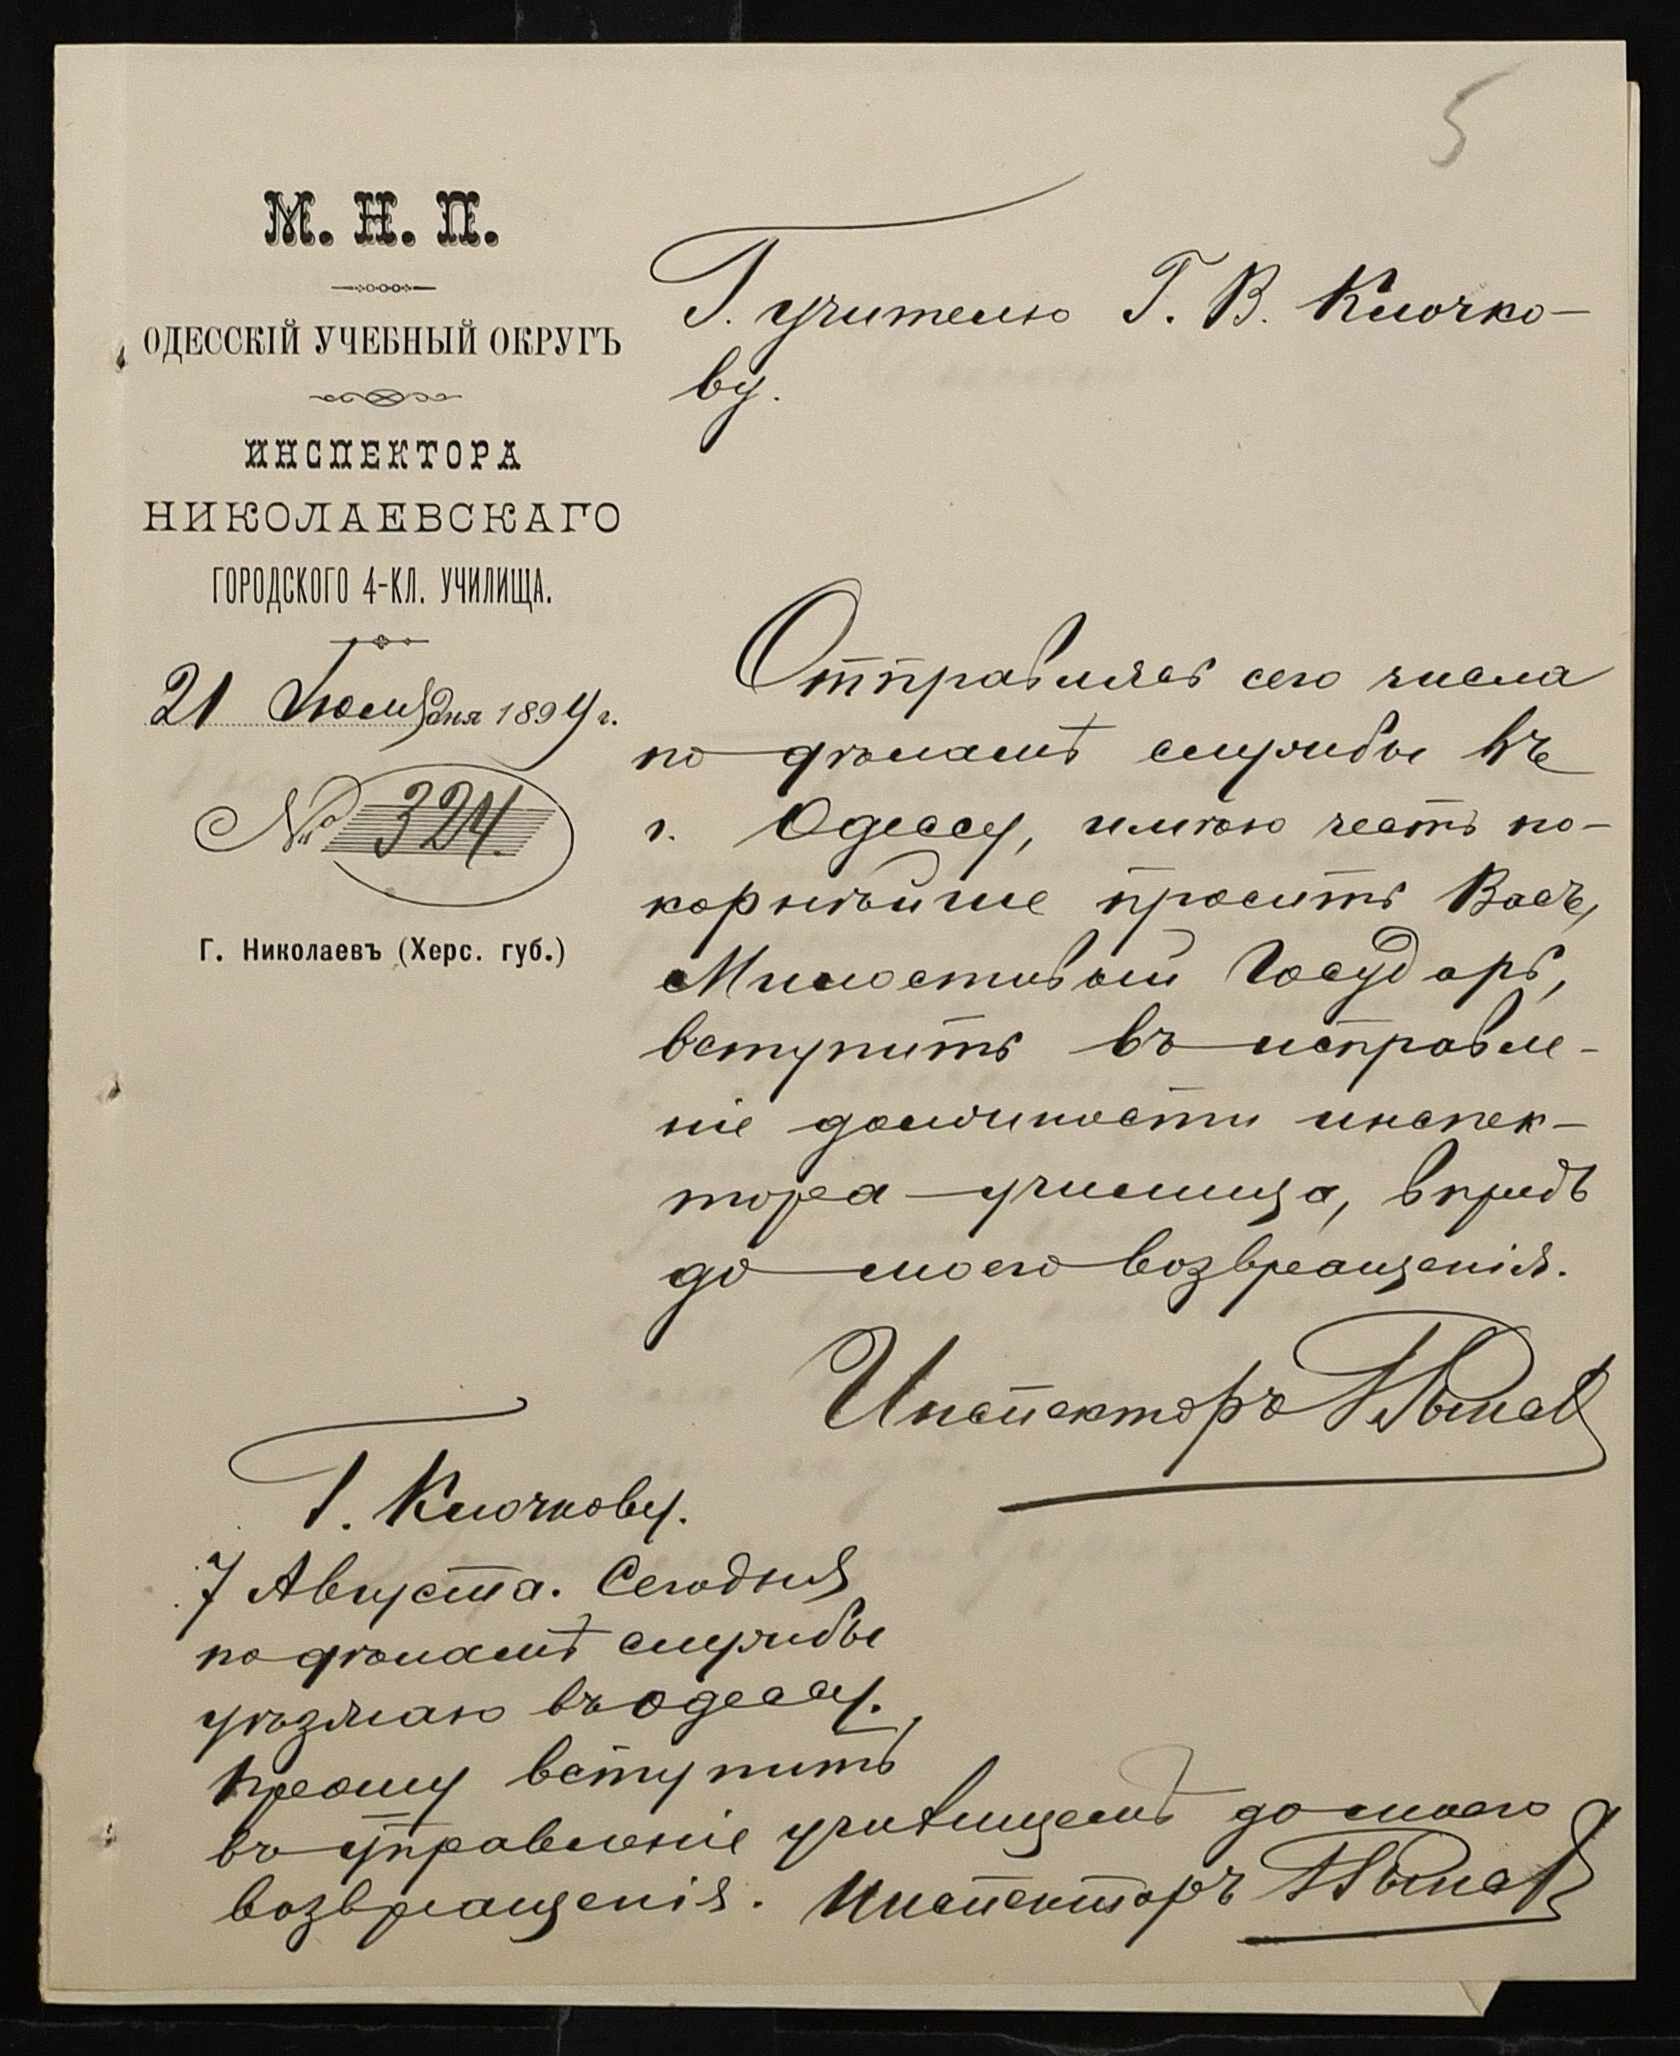 5
М. Н. П.
ОДЕССКІЙ УЧЕБНЫЙ ОКРУГЪ
ИНСПЕКТОРА
НИКОЛАЕВСКАГО
ГОРОДСКОГО 4-КЛ. УЧИЛИЩА.
21 Іюля дня 1894 г.
№ 324.
Г. Николаевъ (Херс. губ.)
Г. учителю Г. В. Клочко-
ву.
Отправляясь сего числа
по дѣламъ службы въ
г. Одессу, имѣю честь по-
корнѣйше просить Васъ,
Милостивый Государь,
вступить въ исправле-
ніе должности инспек-
тора училища, впредь
до моего возвращенія.
Инспекторъ
Г. Клочкову.
7 Августа. Сегодня
по дѣламъ службы
уѣзжаю въ Одессу.
Прошу вступить
въ управленіе училищемъ до моего
возвращенія. Инспекторъ